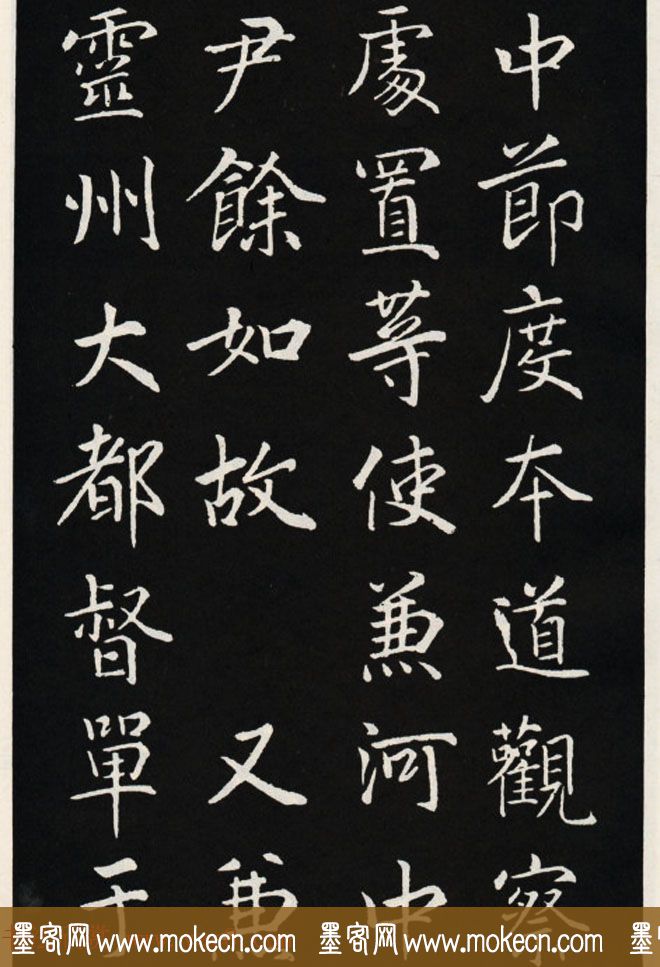 中節度本道觀察
處置等使兼河中
尹餘如故 又兼
靈州大都督單于
墨客网 www.mokecn.com 墨客网 www.mokecn.com